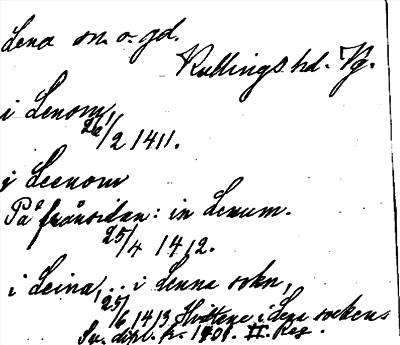 Lena sn. o. gd.
Kullings hd. Vg.
i Lenom,
26/2 1411.
j Leenom
På frånsidan: in Lenum.
25/4 1412.
i Leina, .. i Lenna sokn,
25/6 1413 i Lena sockens
Sv. dipl. fr. 1401. II. Reg.